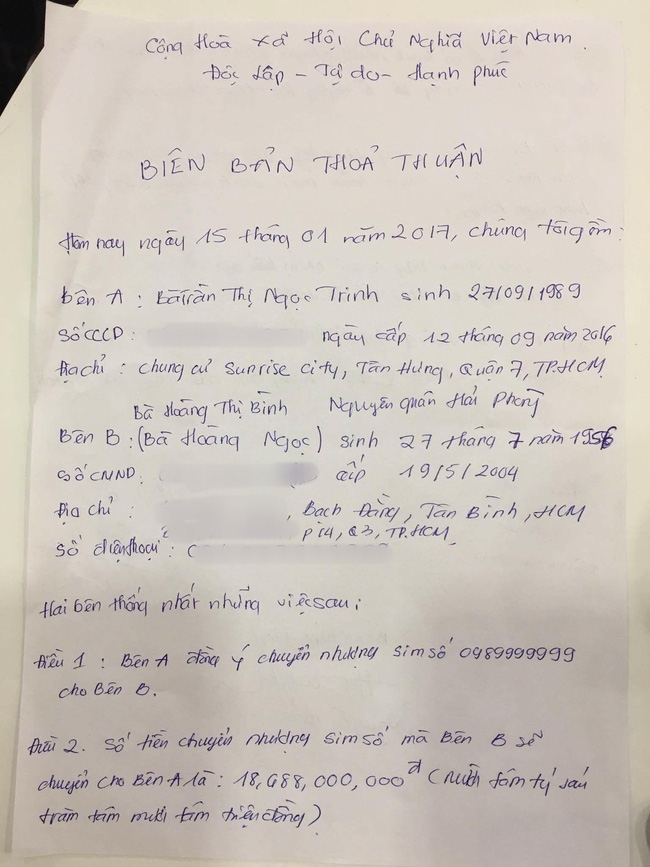 Cộng Hoà Xã Hội Chủ Nghĩa Việt Nam.
Độc lập - Tự do - Hạnh phúc
BIÊN BẢN THOẢ THUẬN
Hôm nay ngày 15 tháng 01 năm 2017, chúng tôi gồm:
Bên A : Bà Trần Thị Ngọc Trinh sinh 27/09/1989
Số CCCD: ngày cấp 12 tháng 09 năm 2016
Địa chỉ : chung cư Sunrise City, Tân Hưng, Quận 7, TP.HCM
Bà Hoàng Thị Bình Nguyên quán Hải Phòng
Bên B : (Bà Hoàng Ngọc) sinh 27 tháng 7 năm 1956
Số CMND: cấp 19/5/2004
Địa chỉ : , Bạch Đằng, Tân Bình, HCM
P14, Q3, TP.HCM
Số điện thoại :
Hai bên thống nhất những việc sau:
Điều 1 : Bên A đồng ý chuyển nhượng sim số 0989999999
cho Bên B.
Điều 2. Số tiền chuyển nhượng sim số mà Bên B sẽ
chuyển cho Bên A là : 18,688,000,000đ (mười tám tỷ sáu
trăm tám mươi tám triệu đồng)